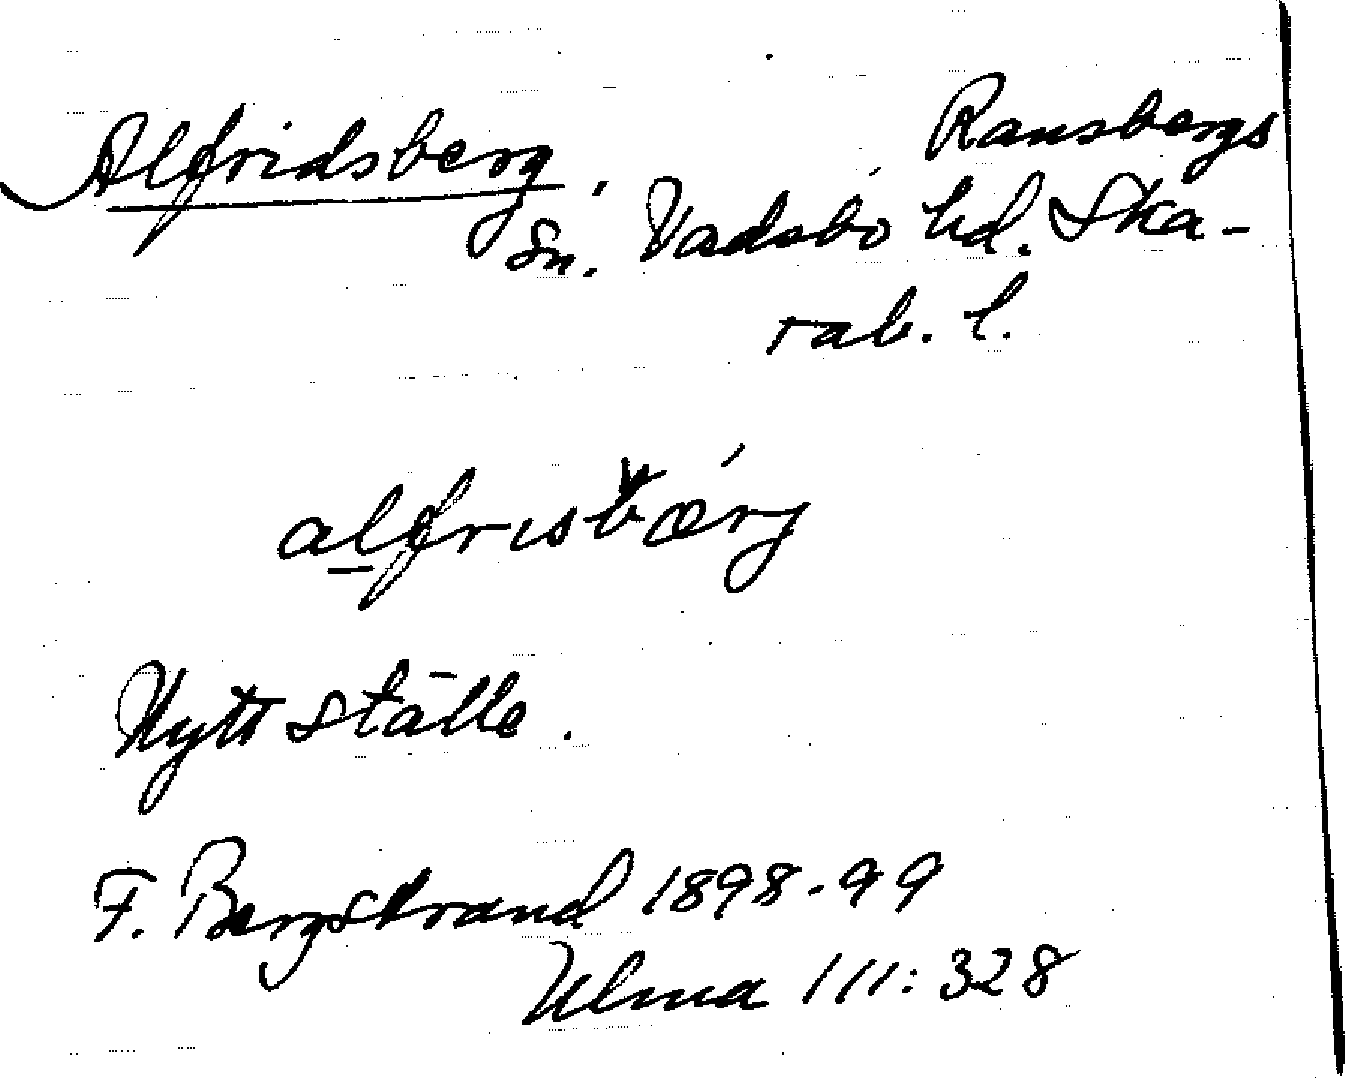 Alfridsberg. Ransbergs
Sn. Vadsbo hd. Ska-
rab. l.
alfrisbærj
Nytt ställe.
F. Bergstrand 1898-99
Ulma 111:328